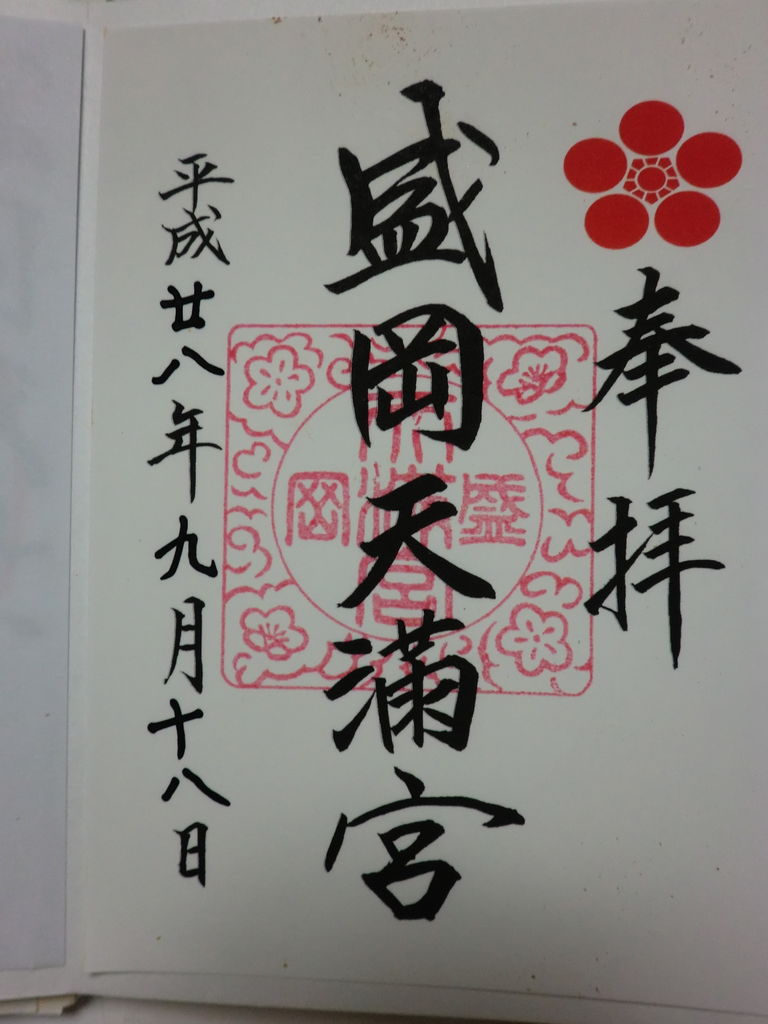 奉拝
盛岡天満宮
平成廿八年九月十八日
盛岡
天満宮